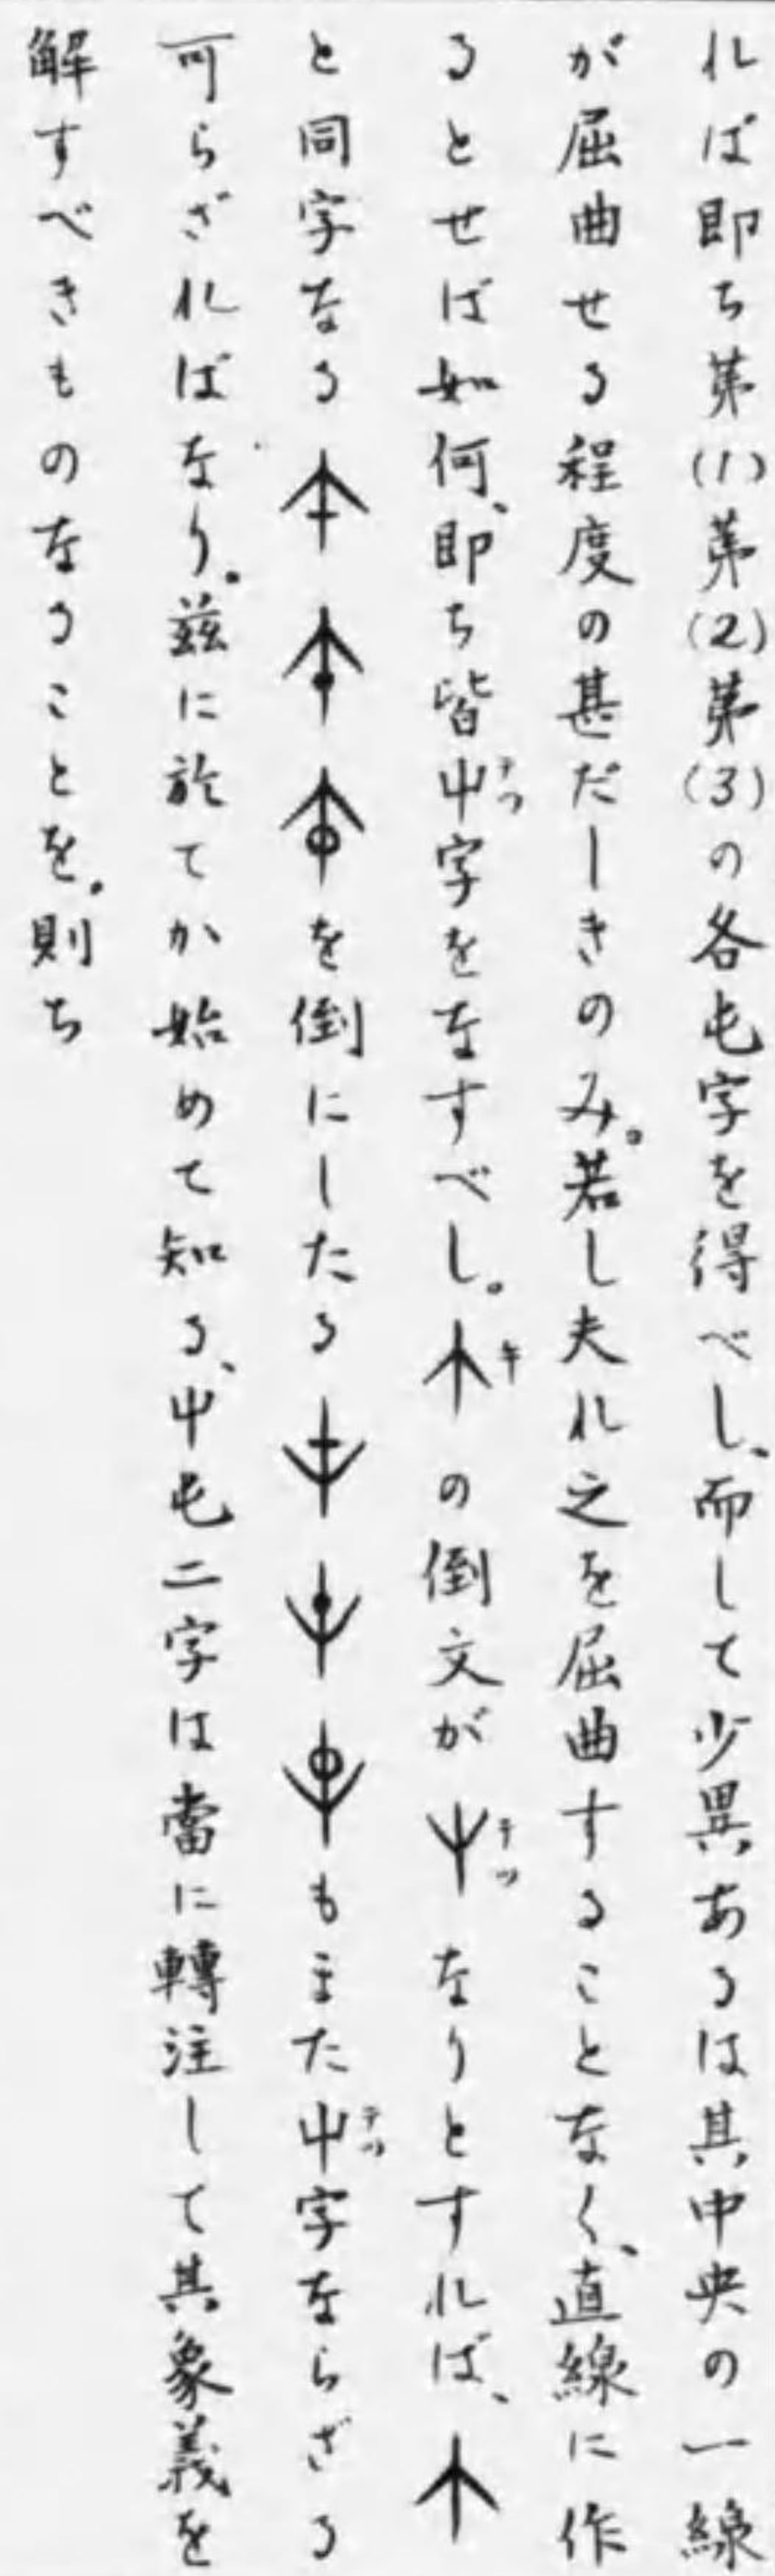 れば即ち第(1)第(2)第(3)の各乇字を得べし、而して少異あるは其中央の一線
が屈曲せる程度の甚だしきのみ。若し夫れ之を屈曲することなく、直線に作
るとせば如何、即ち皆屮字をなすべし。の倒文がなりとすれば、
と同字なるを倒にしたるもまた屮字ならざる
可らざればなり。茲に於てか始めて知る、屮乇二字は當に轉注して其象義を
解すべきものなることを。則ち